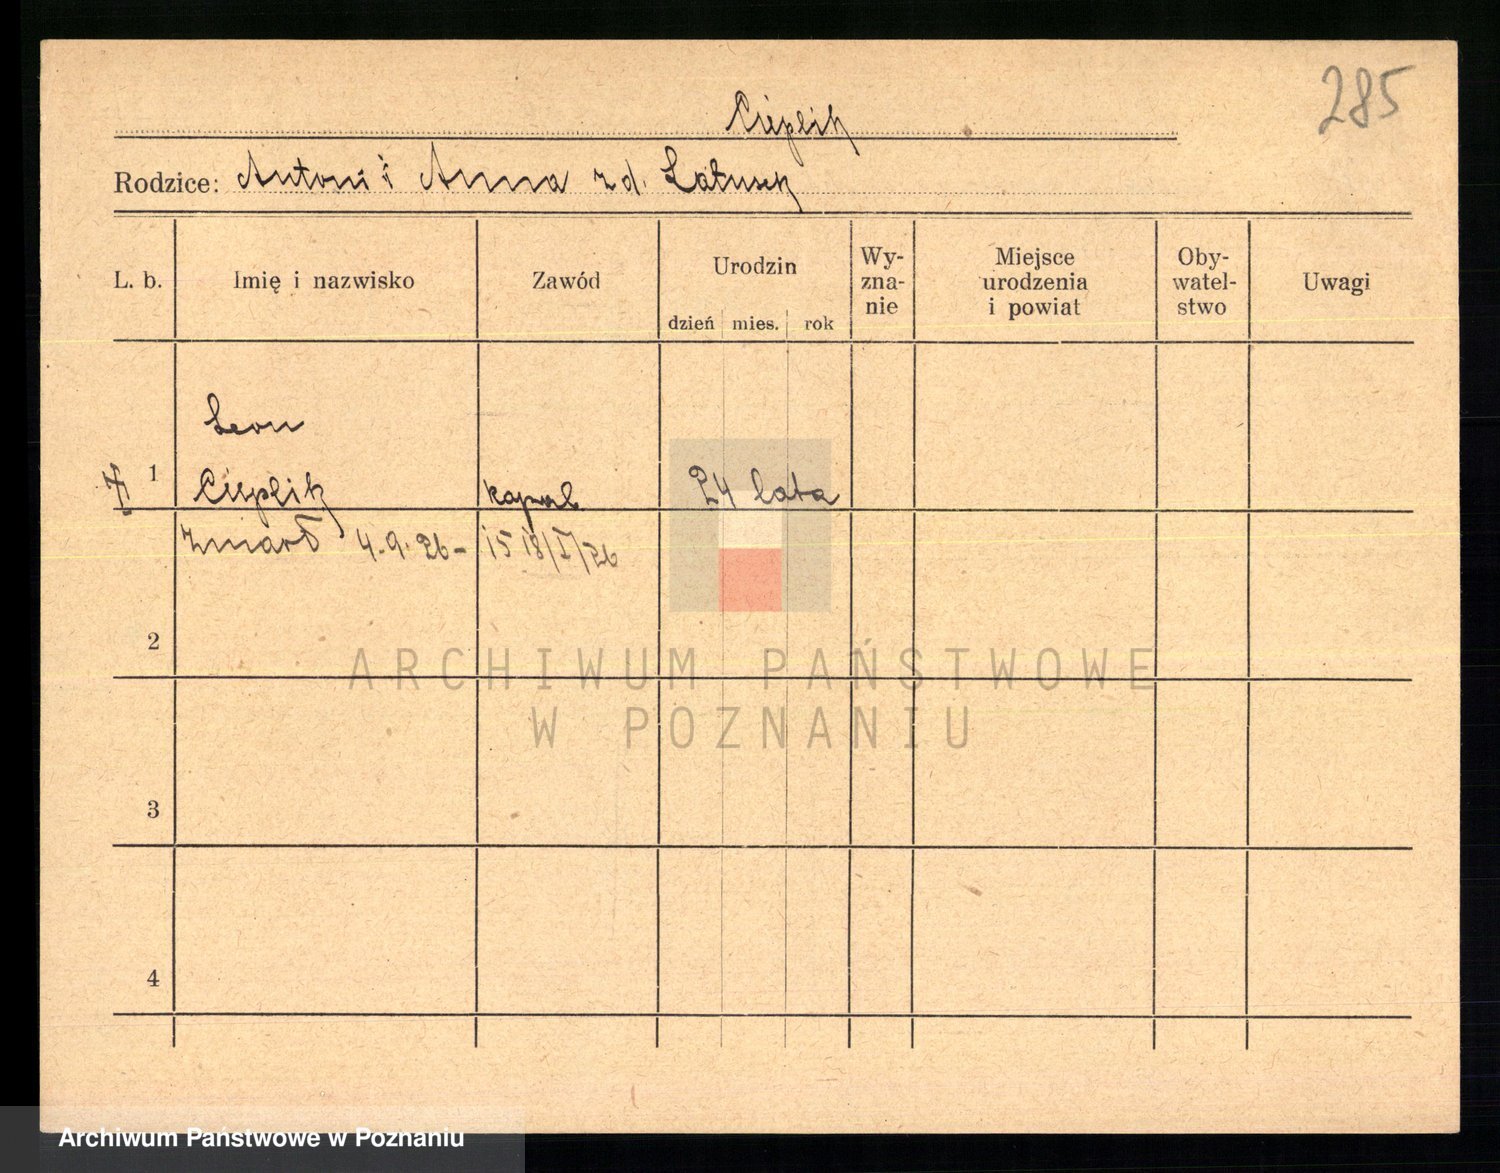 285
Cieplik
Rodzice: Antoni i Anna zd. Latusek
L. b. Imię i nazwisko Zawód Urodzin dzień mies. rok Wyznanie Miejsce urodzenia i powiat Obywatelstwo Uwagi
Leon
1 Cieplik kapral 24 lata
zmarł 4.9.26 - 15 18/I/26
2
ARCHIWUM PAŃSTWOWE
W POZNANIU
3
4
Archiwum Państwowe w Poznaniu